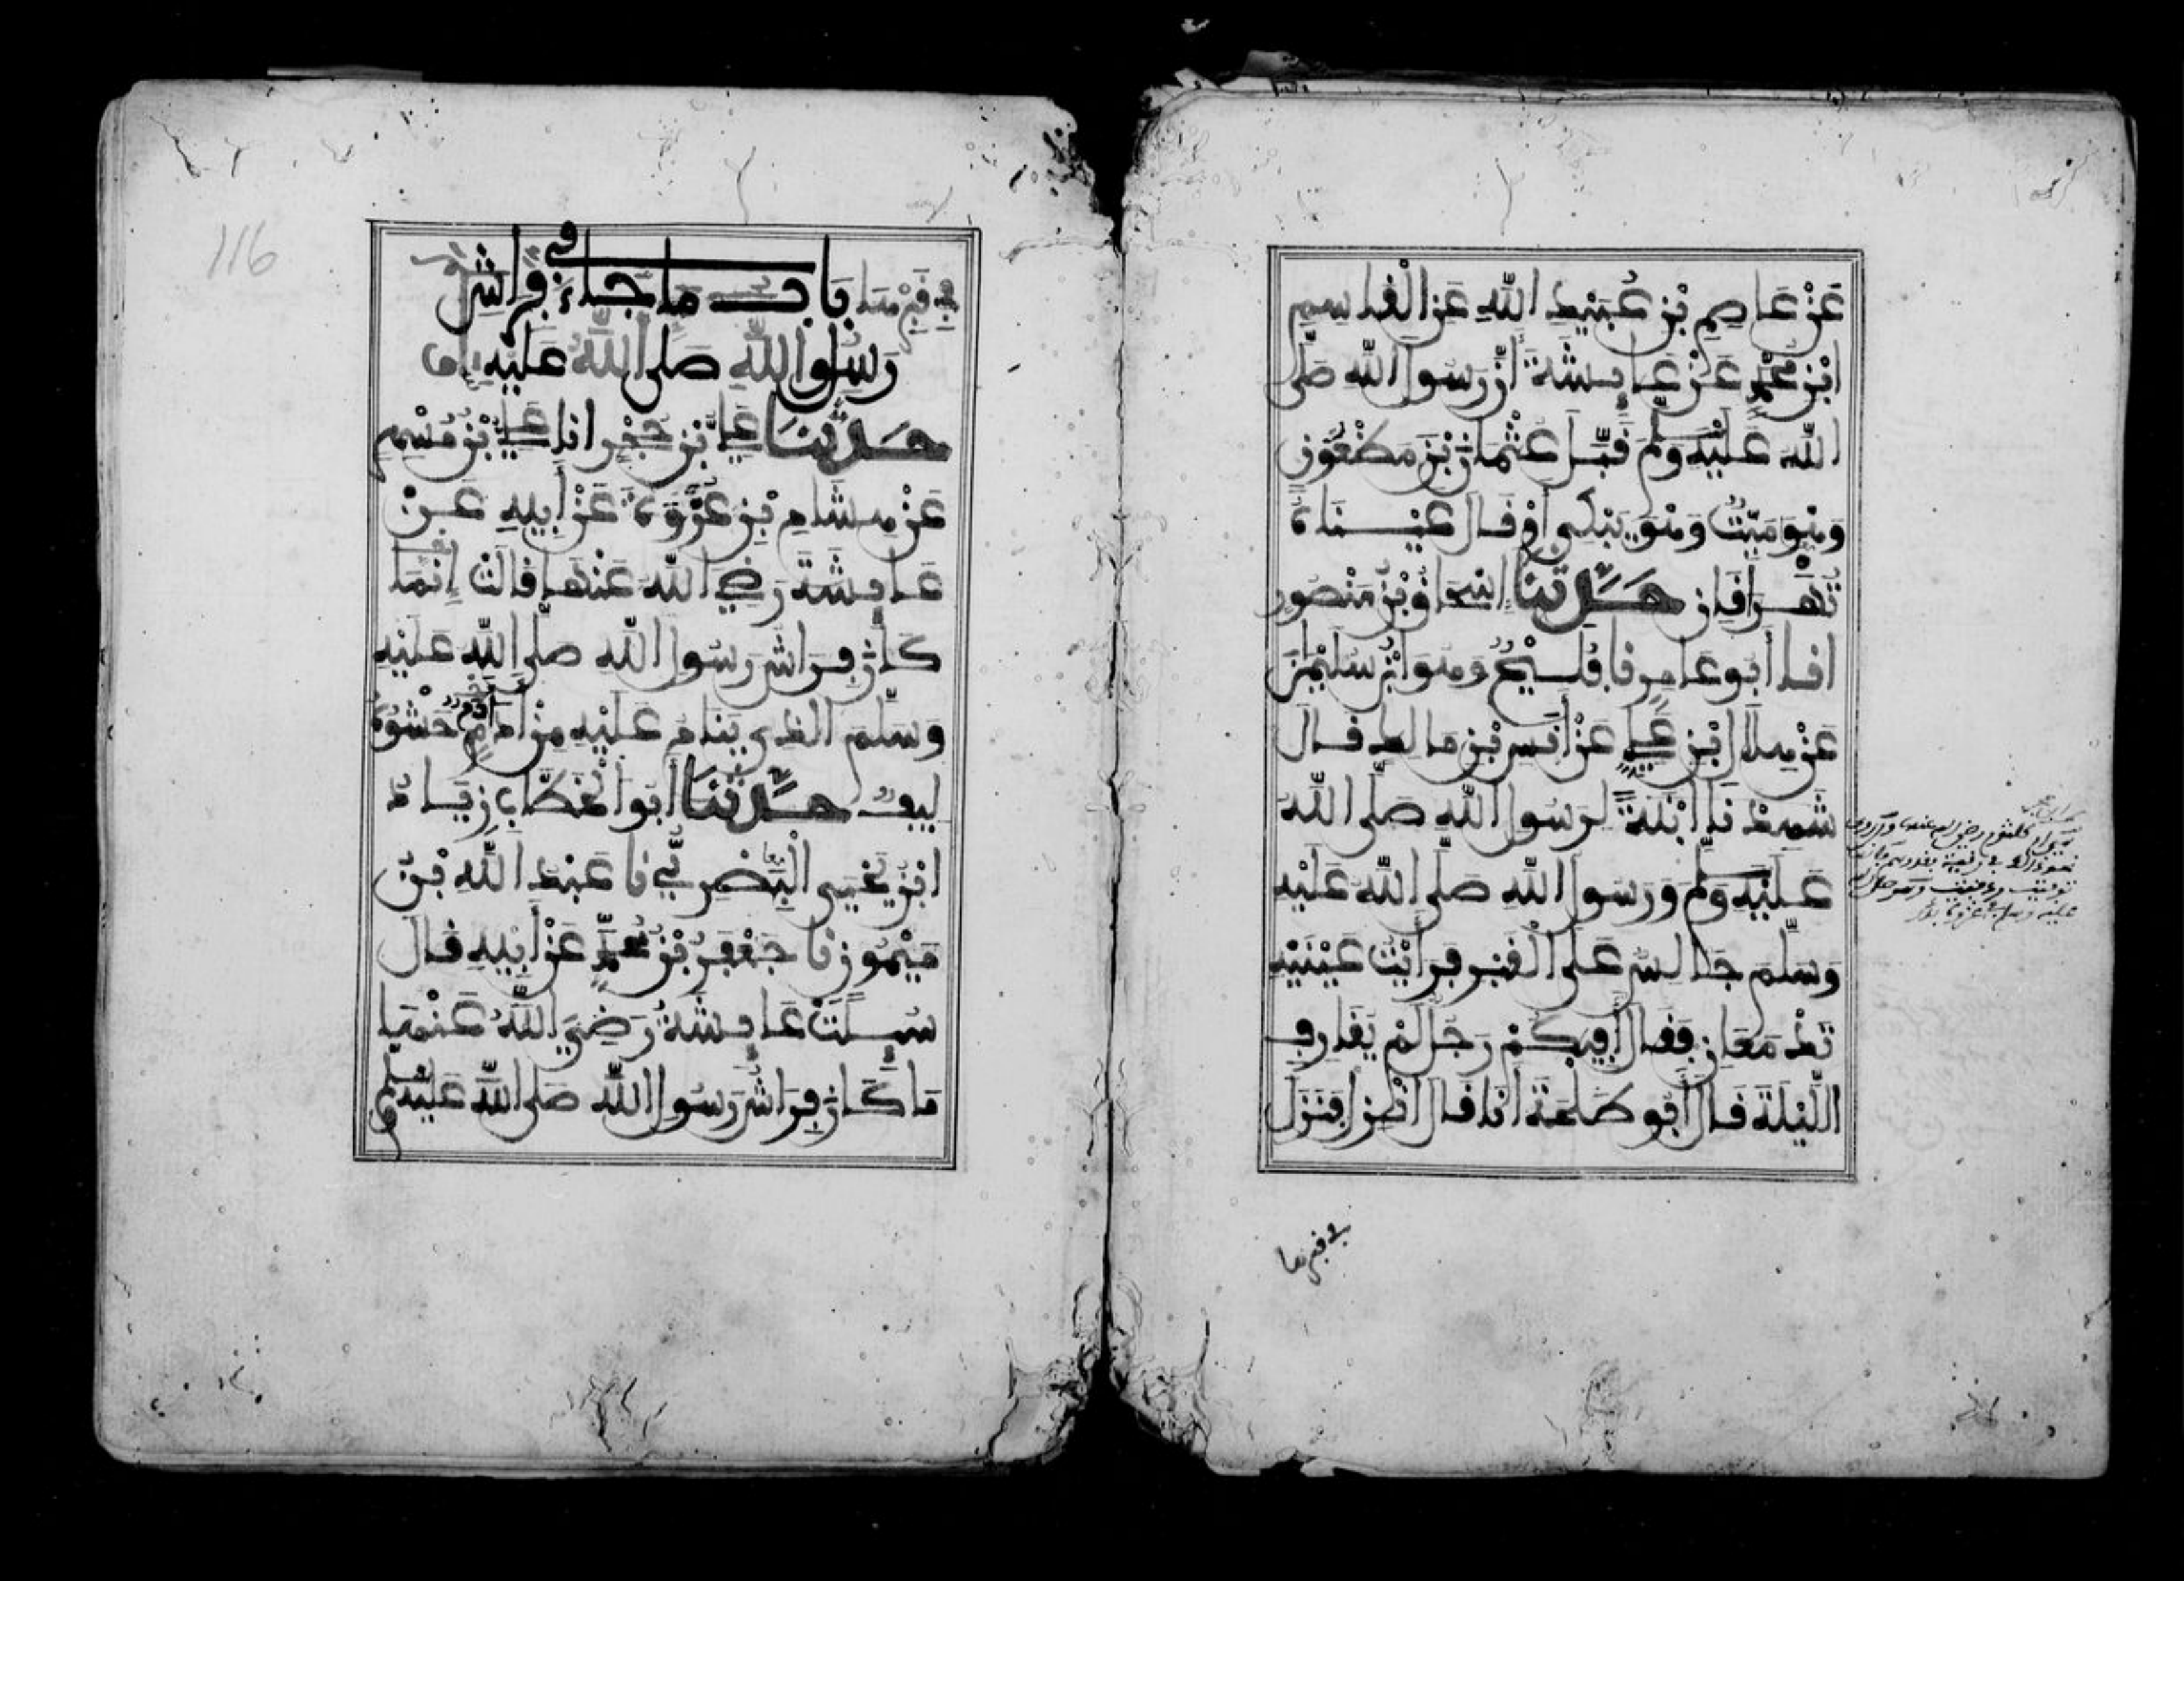 عَنْ عَاصِمِ بْنِ عُبَيْدِ اللَّهِ عَنِ الْقَاسِمِ
ابْنِ مُحَمَّدٍ عَنْ عَائِشَةَ أَنَّ رَسُولَ اللَّهِ صَلَّى
اللَّه عَلَيْهِ وَسَلَّمَ قَبَّلَ عُثْمَانَ بْنَ مَظْعُونٍ
وَهُوَ مَيِّتٌ وَهُوَ يَبْكِي أَوْ قَالَ عَيْنَاهُ
تُهْرَاقَانِ حَدَّثَنَا إِسْحَاقُ بْنُ مَنْصُورٍ
انا أَبُو عَامِرٍ نا فُلَيْحٌ وَهُوَ ابْنُ سُلَيْمٰنَ
عَنْ هِلَالِ بْنِ عَلِيٍّ عَنْ أَنَسِ بْنِ مَالِكٍ قَالَ
شَهِدْنَا ابْنَةً لِرَسُولِ اللَّهِ صَلَّى اللَّهُ
عَلَيْهِ وَسَلَّمَ وَرَسُولُ اللَّهِ صَلَّى اللَّهُ عَلَيْهِ
وَسَلَّمَ جَالِسٌ عَلَى الْقَبْرِ فَرَأَيْتُ عَيْنَيْهِ
تَدْمَعَانِ فَقَالَ أَفِيكُمْ رَجُلٌ لَمْ يُقَارِفِ
اللَّيْلَةَ قَالَ أَبُو طَلْحَةَ أَنَا قَالَ انْزِلْ فَنَزَلَ
في قبرها
فِي قَبْرِهَا بَابُ مَا جَاءَ فِي فِرَاشِ
رَسُولِ اللَّهِ صَلَّى اللَّهُ عَلَيْهِ
حَدَّثَنَا عَلِيُّ بْنُ حُجْرٍ انا عَلِيُّ بْنُ مُسْهِرٍ
عَنْ هِشَامِ بْنِ عُرْوَةَ عَنْ أَبِيهِ عَنْ
عَائِشَةَ رَضِيَ اللَّهُ عَنْهَا قَالَتْ إِنَّمَا
كَانَ فِرَاشُ رَسُولِ اللَّهِ صَلَّى اللَّهُ عَلَيْهِ
وَسَلَّمَ الَّذِي يَنَامُ عَلَيْهِ مِنْ أَدَمٍ حَشْوُهُ
لِيفٌ حَدَّثَنَا أَبُو الْخَطَّابِ زِيَادُ
ابْنُ يَحْيَى الْبَصْرِيُّ نا عَبْدُ اللَّهِ بْنُ
مَيْمُونٍ نا جَعْفَرُ بْنُ مُحَمَّدٍ عَنْ أَبِيهِ قَالَ
سُئِلَتْ عَائِشَةُ رَضِيَ اللَّهُ عَنْهَا
مَا كَانَ فِرَاشُ رَسُولِ اللَّهِ صَلَّى اللَّهُ عَلَيْهِ وَسَلَّمَ
116